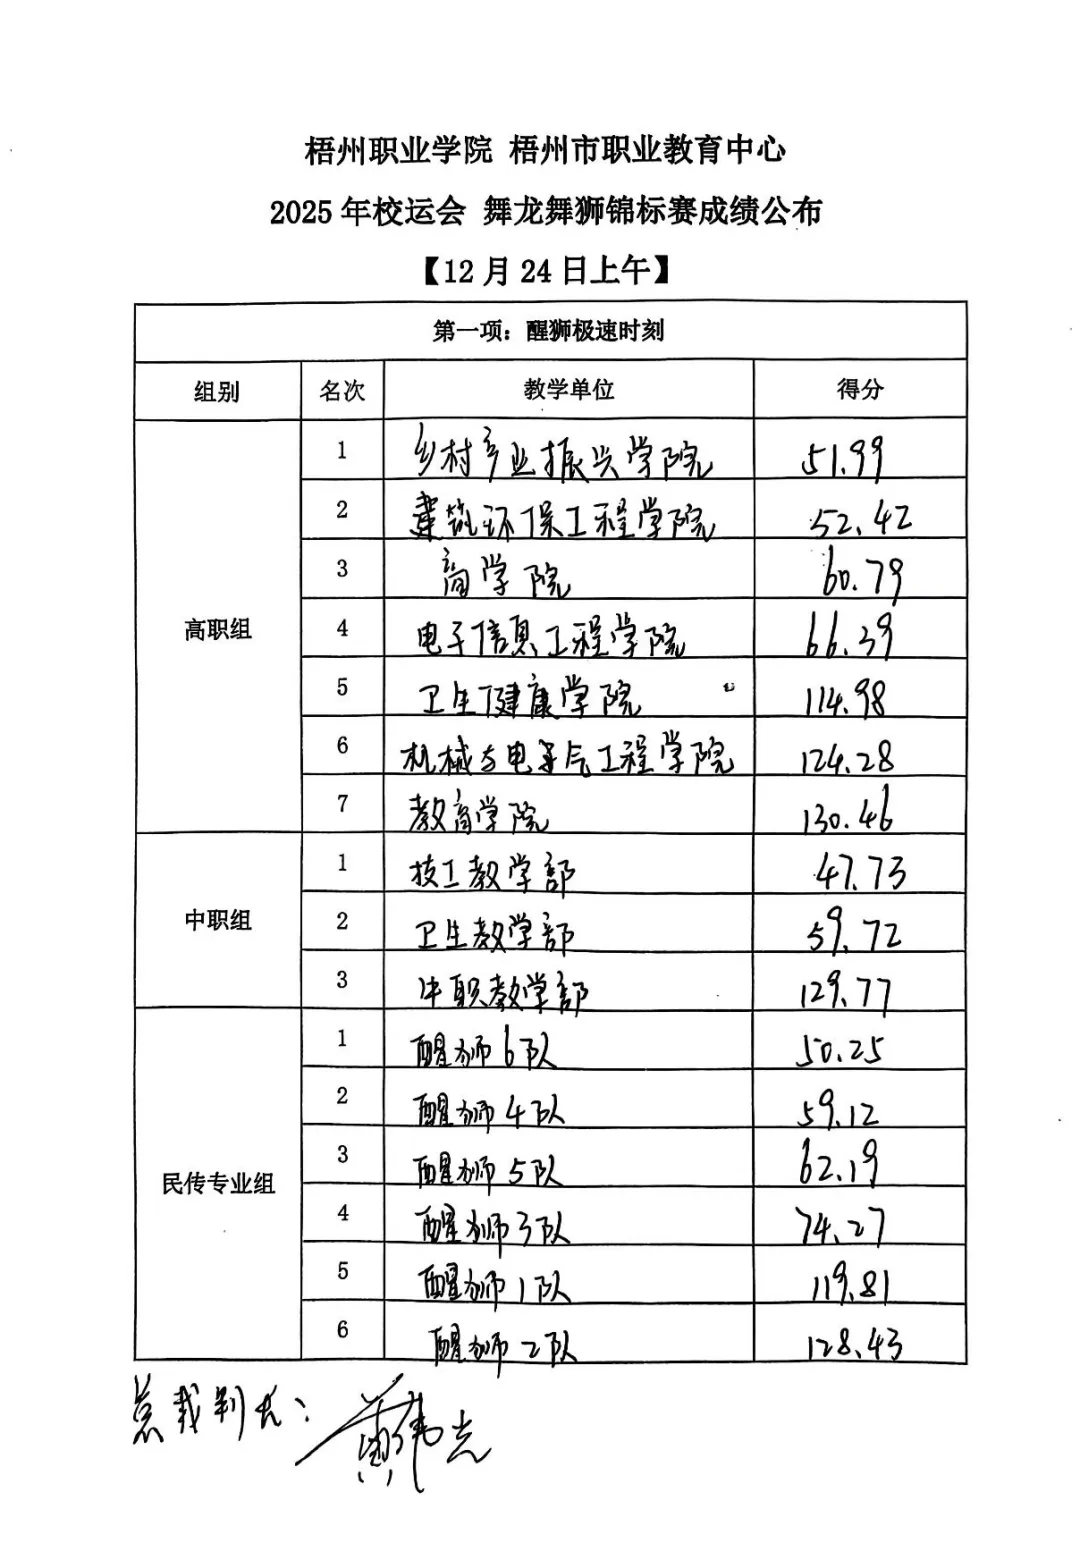 梧州职业学院 梧州市职业教育中心
2025 年校运会 舞龙舞狮锦标赛成绩公布
【12 月 24 日上午】
第一项：醒狮极速时刻
组别 名次 教学单位 得分
高职组
1 乡村产业振兴学院 51.99
2 建筑环保工程学院 52.42
3 商学院 60.79
4 电子信息工程学院 66.39
5 卫生健康学院 114.98
6 机械与电气工程学院 124.28
7 教育学院 130.46
中职组
1 技工教学部 47.73
2 卫生教学部 59.72
3 中职教学部 129.77
民传专业组
1 醒狮6队 50.25
2 醒狮4队 59.12
3 醒狮5队 62.19
4 醒狮3队 74.27
5 醒狮1队 119.81
6 醒狮2队 128.43
总裁判长：